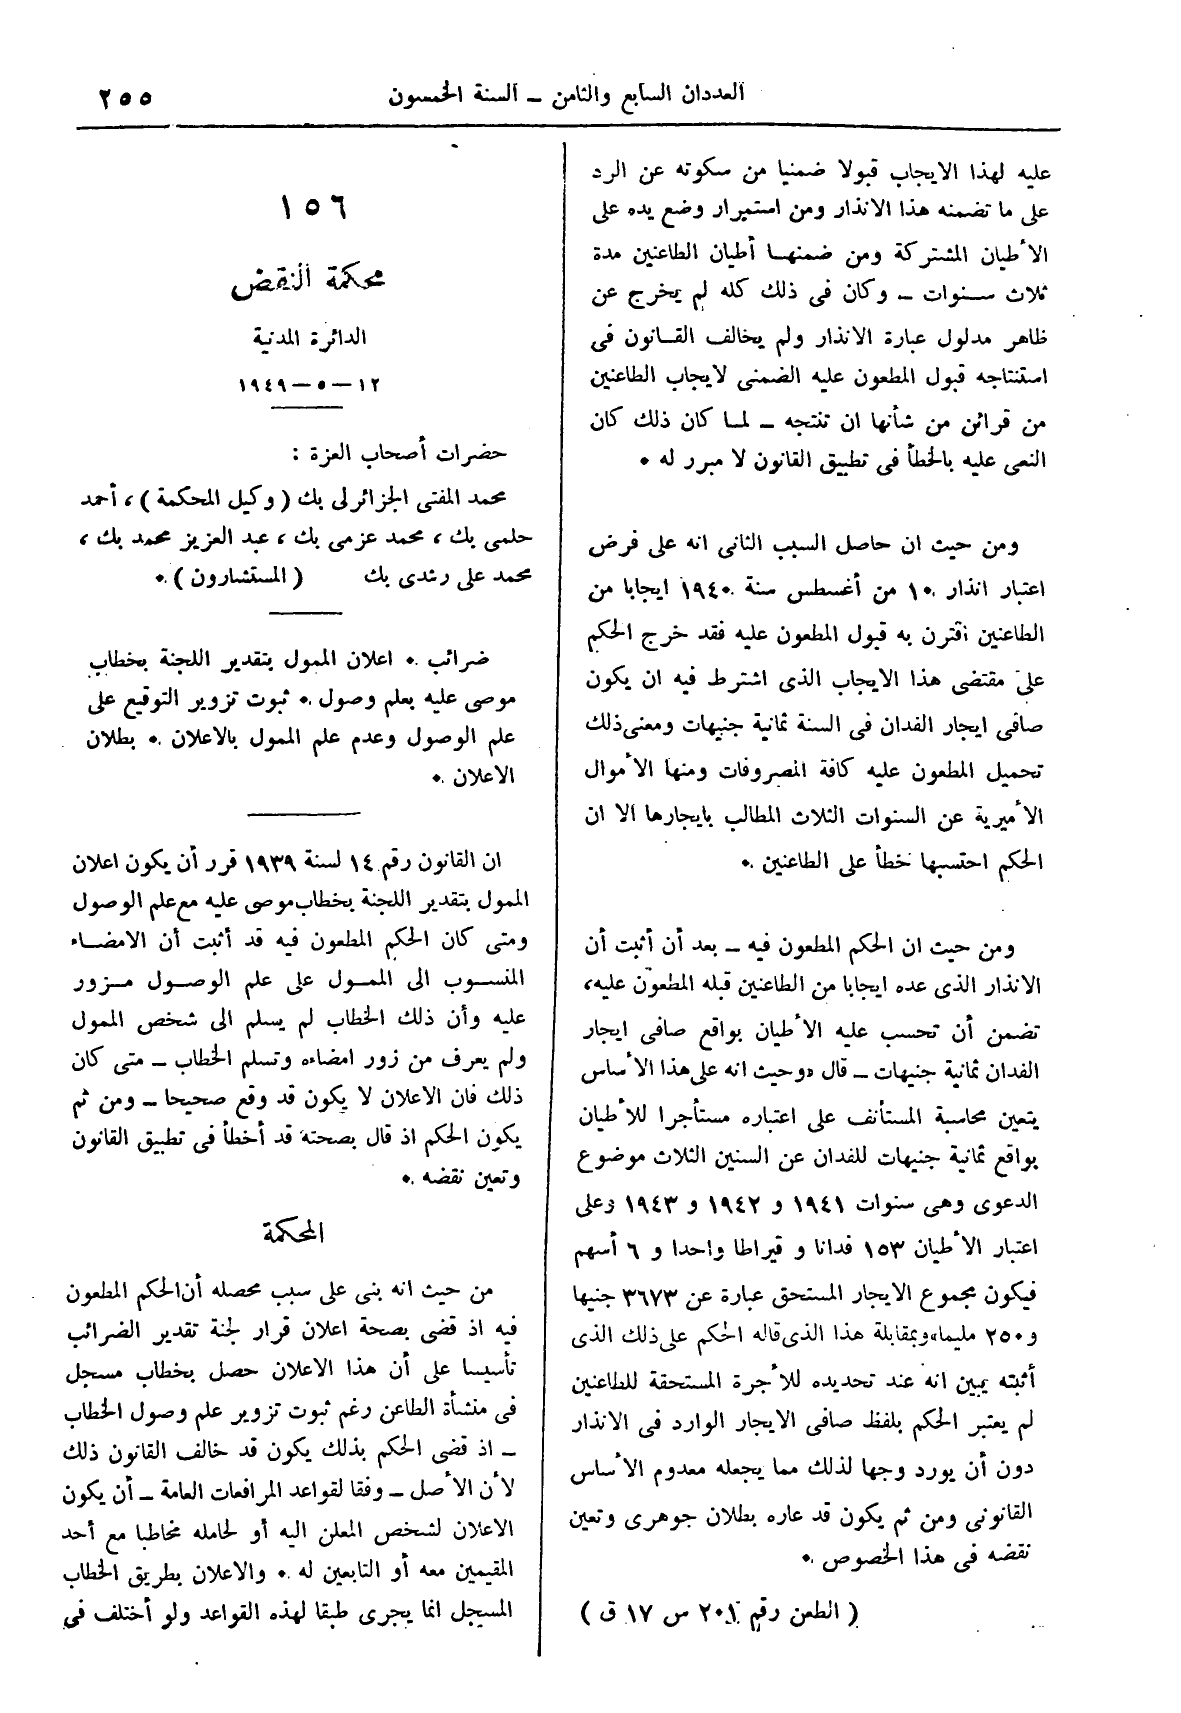 العددان السابع والثامن ــ السنة الخمسون
٢٥٥
عليه لهذا الايجاب قبولا ضمنيا من سكوته عن الرد
على ما تضمنه هذا الانذار ومن استمرار وضع يده على
الأطيان المشتركة ومن ضمنها أطيان الطاعنين مدة
ثلاث سنوات ــ وكان فى ذلك كله لم يخرج عن
ظاهر مدلول عبارة الانذار ولم يخالف القانون فى
استنتاجه قبول المطعون عليه الضمنى لايجاب الطاعنين
من قرائن من شأنها ان تنتجه ــ لما كان ذلك كان
النعى عليه بالخطأ فى تطبيق القانون لا مبرر له ٠
ومن حيث ان حاصل السبب الثانى انه على فرض
اعتبار انذار ١٠ من أغسطس سنة ١٩٤٠ ايجابا من
الطاعنين اقترن به قبول المطعون عليه فقد خرج الحكم
على مقتضى هذا الايجاب الذى اشترط فيه ان يكون
صافى ايجار الفدان فى السنة ثمانية جنيهات ومعنى ذلك
تحميل المطعون عليه كافة المصروفات ومنها الأموال
الأميرية عن السنوات الثلاث المطالب بايجارها الا ان
الحكم احتسبها خطأ على الطاعنين ٠
ومن حيث ان الحكم المطعون فيه ــ بعد أن أثبت أن
الانذار الذى عده ايجابا من الطاعنين قبله المطعون عليه،
تضمن أن تحسب عليه الأطيان بواقع صافى ايجار
الفدان ثمانية جنيهات ــ قال «وحيث انه على هذا الأساس
يتعين محاسبة المستأنف على اعتباره مستأجرا للأطيان
بواقع ثمانية جنيهات للفدان عن السنين الثلاث موضوع
الدعوى وهى سنوات ١٩٤١ و ١٩٤٢ و ١٩٤٣ وعلى
اعتبار الأطيان ١٥٣ فدانا و قيراطا واحدا و ٦ أسهم
فيكون مجموع الايجار المستحق عبارة عن ٣٦٧٣ جنيها
و٢٥٠ مليما» وبمقابلة هذا الذى قاله الحكم على ذلك الذى
أثبته يبين انه عند تحديده للأجرة المستحقة للطاعنين
لم يعتبر الحكم بلفظ صافى الايجار الوارد فى الانذار
دون أن يورد وجها لذلك مما يجعله معدوم الأساس
القانونى ومن ثم يكون قد عاره بطلان جوهرى وتعين
نقضه فى هذا الخصوص ٠
( الطعن رقم ٢٠١ س ١٧ ق )
١٥٦
محكمة النقض
الدائرة المدنية
١٢ ــ ٥ ــ ١٩٤٩
حضرات أصحاب العزة :
محمد المفتى الجزائرلى بك ( وكيل المحكمة ) ، أحمد
حلمى بك ، محمد عزمى بك ، عبد العزيز محمد بك ،
محمد على رشدى بك ( المستشارون ) ٠
ضرائب ٠ اعلان الممول بتقدير اللجنة بخطاب
موصى عليه بعلم وصول ٠ ثبوت تزوير التوقيع على
علم الوصول وعدم علم الممول بالاعلان ٠ بطلان
الاعلان ٠
ان القانون رقم ١٤ لسنة ١٩٣٩ قرر أن يكون اعلان
الممول بتقدير اللجنة بخطاب موصى عليه مع علم الوصول
ومتى كان الحكم المطعون فيه قد أثبت أن الامضاء
المنسوب الى الممول على علم الوصول مزور
عليه وأن ذلك الخطاب لم يسلم الى شخص الممول
ولم يعرف من زور امضاءه وتسلم الخطاب ــ متى كان
ذلك فان الاعلان لا يكون قد وقع صحيحا ــ ومن ثم
يكون الحكم اذ قال بصحته قد أخطأ فى تطبيق القانون
وتعين نقضه ٠
المحكمة
من حيث انه بنى على سبب محصله أن الحكم المطعون
فيه اذ قضى بصحة اعلان قرار لجنة تقدير الضرائب
تأسيسا على أن هذا الاعلان حصل بخطاب مسجل
فى منشأة الطاعن رغم ثبوت تزوير علم وصول الخطاب
ــ اذ قضى الحكم بذلك يكون قد خالف القانون ذلك
لأن الأصل ــ وفقا لقواعد المرافعات العامة ــ أن يكون
الاعلان لشخص المعلن اليه أو لحامله مخاطبا مع أحد
المقيمين معه أو التابعين له ٠ والاعلان بطريق الخطاب
المسجل انما يجرى طبقا لهذه القواعد ولو أختلف فى